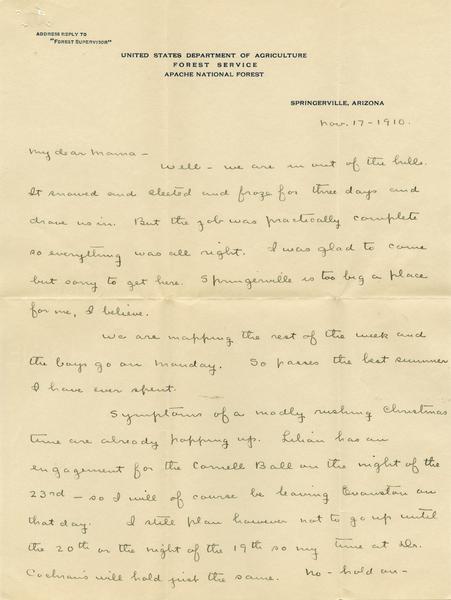 ADDRESS REPLY TO
"FOREST SUPERVISOR"
UNITED STATES DEPARTMENT OF AGRICULTURE
FOREST SERVICE
APACHE NATIONAL FOREST
SPRINGERVILLE, ARIZONA
Nov. 17 - 1910.
My dear Mama -
Well - we are in out of the hills.
It snowed and sleeted and froze for three days and
drove us in. But the job was practically complete
so everything was all right. I was glad to come
but sorry to get here. Springerville is too big a place
for me, I believe.
We are mapping the rest of the week and
the boys go on Monday. So passes the best summer
I have ever spent.
Symptoms of a madly rushing Christmas
time are already popping up. Lilian has an
engagement for the Cornell Ball on the night of the
23rd - so I will of course be leaving Evanston on
that day. I still plan however not to go up until
the 20th or the night of the 19th so my time at Dr.
Cochran's will hold just the same. No - hold on -